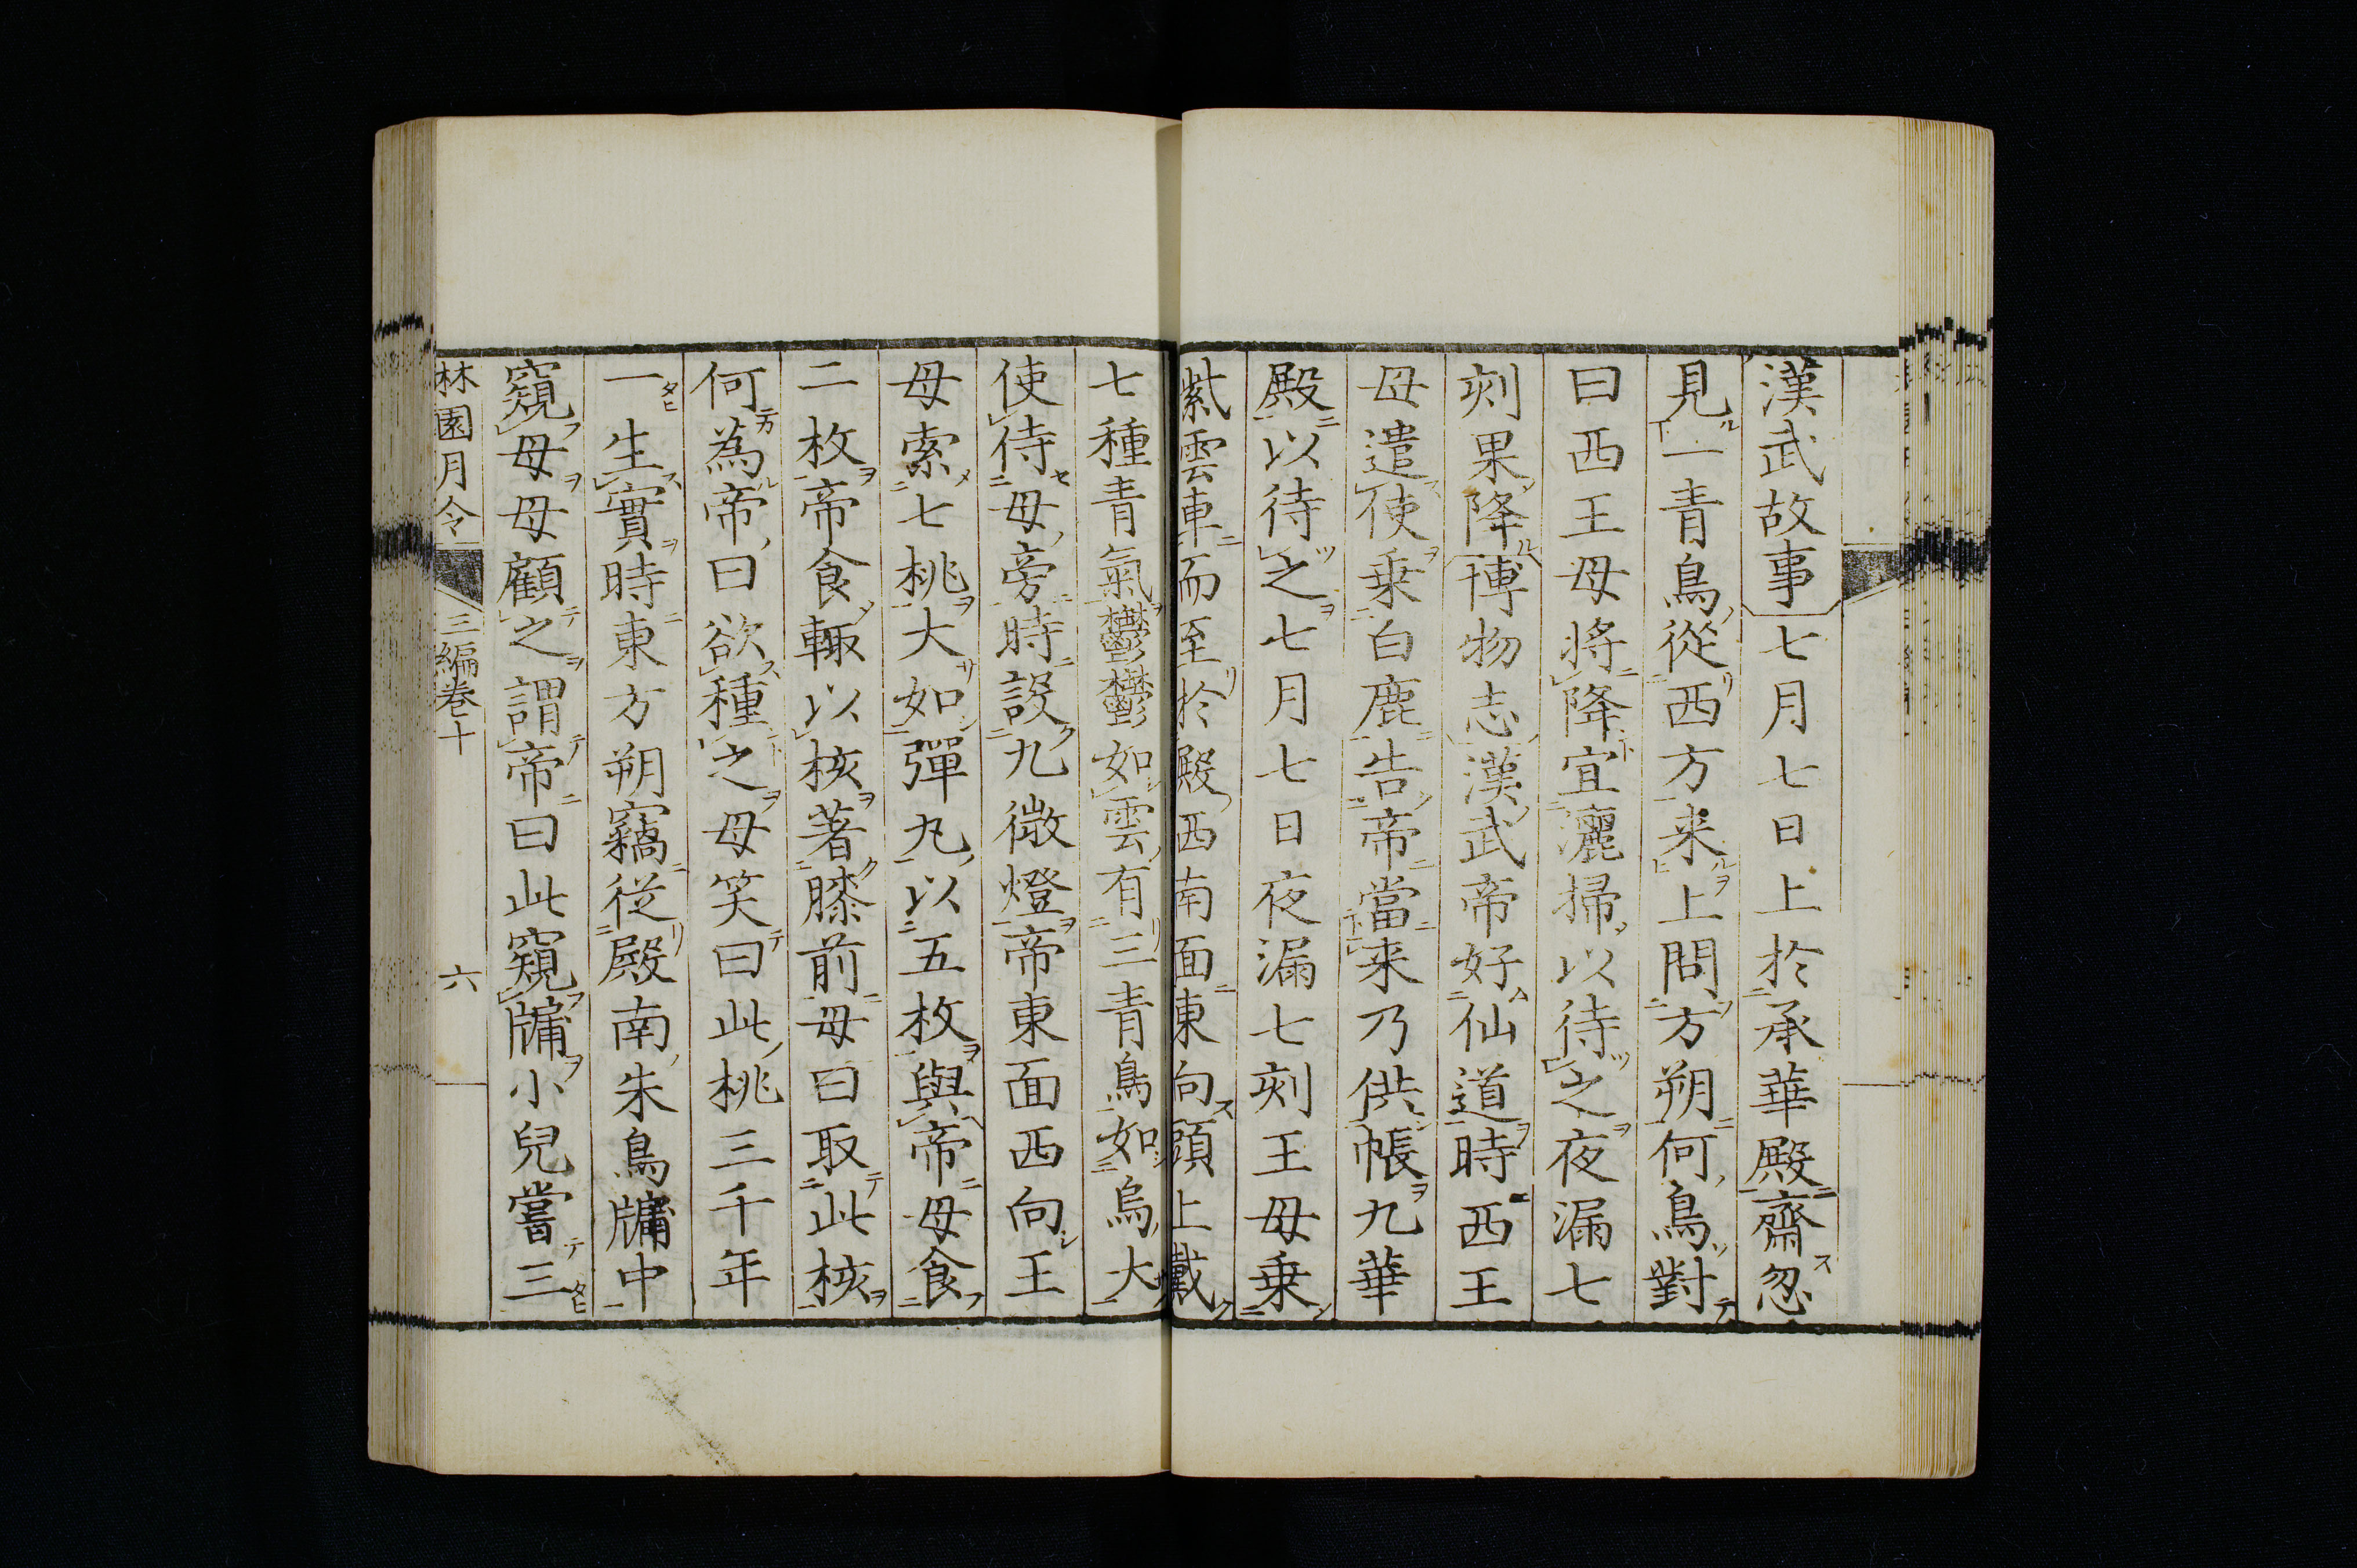 漢武故事七月七日上於承華殿齋忽
見一青鳥從西方来上問方朔何鳥對
曰西王母将降宜灑掃以待之夜漏七
刻果降博物志漢武帝好仙道時西王
母遣使乗白鹿告帝當来乃供帳九華
殿以待之七月七日夜漏七刻王母乗
紫雲車而至於殿西南面東向頭上戴
七種青氣欝欝如雲有三青鳥如烏大
使侍母旁時設九微燈帝東面西向王
母索七桃大如彈丸以五枚與帝母食
二枚帝食輙以核著膝前母曰取此核
何為帝曰欲種之母笑曰此桃三千年
一生實時東方朔竊從殿南朱鳥牖中
窺母母顧之謂帝曰此窺牖小兒嘗三
林園月令 三編巻十 六